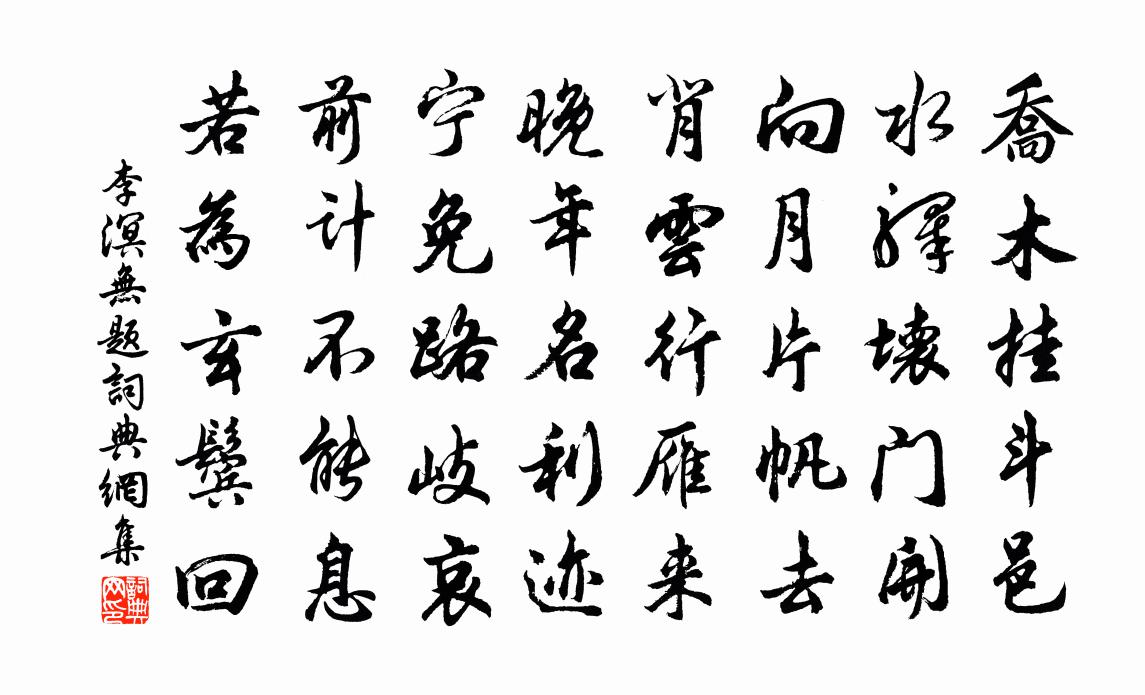 喬木挂斗邑
水驛壞门開
向月片帆去
背雲行雁来
晚年名利迹
宁免路岐哀
前计不能息
若為玄鬓回
李溟無题詞典網集
詞典
网印